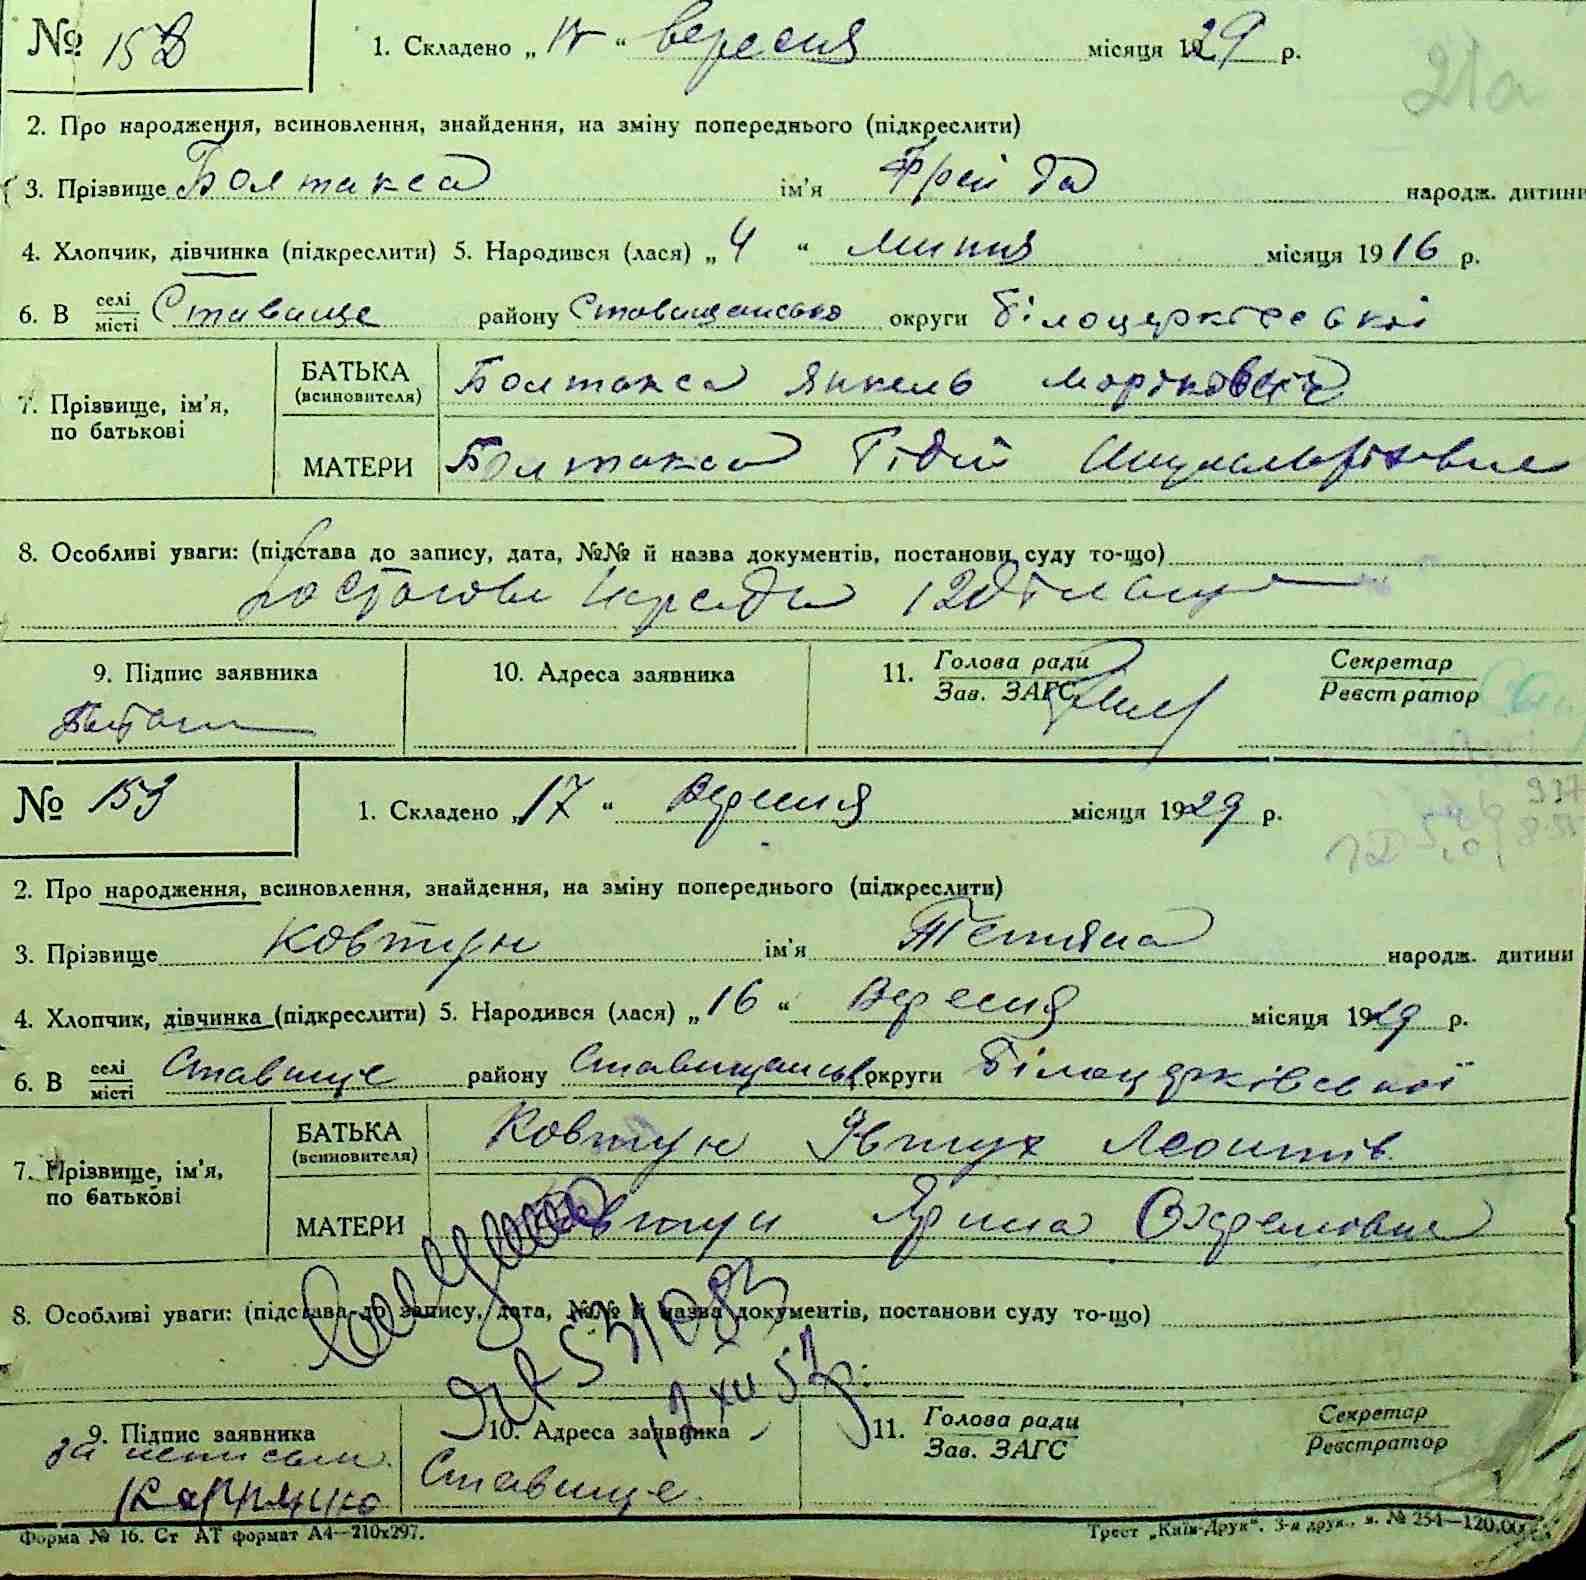 № 152 1. Складено „ 17 “ вересня місяця 1929 р.
21а
2. Про народження, всиновлення, знайдення, на зміну попереднього (підкреслити)
3. Прізвище Болтакса ім'я Фрейда народж. дитини
4. Хлопчик, дівчинка (підкреслити) 5. Народився (лася) „ 4 “ липня місяця 1916 р.
6. В селі/місті Ставище району Ставищансько округи Білоцерківської
7. Прізвище, ім'я, по батькові
БАТЬКА (всиновителя) Болтакса Янкель Моріковіч
МАТЕРИ Болтакса
8. Особліві уваги: (підстава до запису, дата, №№ й назва документів, постанови суду то-що)
9. Підпис заявника 10. Адреса заявника 11. Голова ради Секретар
Зав. ЗАГС Реєстратор
№ 153 1. Складено „ 17 “ Вересня місяця 1929 р.
2. Про народження, всиновлення, знайдення, на зміну попереднього (підкреслити)
3. Прізвище Ковтун ім'я Тетяна народж. дитини
4. Хлопчик, дівчинка (підкреслити) 5. Народився (лася) „ 16 “ Вересня місяця 1929 р.
6. В селі/місті Ставище району Ставищансь округи Білоцерківської
7. Прізвище, ім'я, по батькові
БАТЬКА (всиновителя) Ковтун Явтух Леонтів
МАТЕРИ Ковтун Ярина Охремовна
8. Особліві уваги: (підстава до запису, дата, №№ й назва документів, постанови суду то-що)
9. Підпис заявника 10. Адреса заявника 11. Голова ради Секретар
Зав. ЗАГС Реєстратор
за неписьм. Ставище
Форма № 16. Ст АТ формат А4—210х297. Трест „Київ-Друк“. 3-я друк., з. № 254—120.000